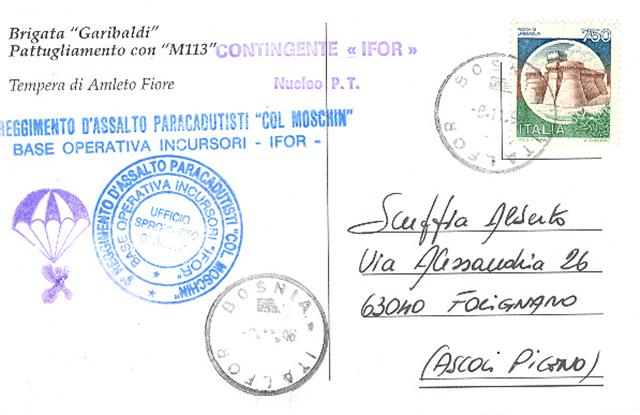 Brigata "Garibaldi"
Pattugliamento con "M113"
Tempera di Amleto Fiore
CONTINGENTE « IFOR »
Nucleo P. T.
REGGIMENTO D'ASSALTO PARACADUTISTI "COL MOSCHIN"
BASE OPERATIVA INCURSORI - IFOR -
9° REGGIMENTO D'ASSALTO PARACADUTISTI "COL MOSCHIN"
BASE OPERATIVA INCURSORI "IFOR"
UFFICIO
750
ITALIA
BOSNIA
ITALFOR
BOSNIA
ITALFOR
Alberto
Via Alessandria 26
63040 FOLIGNANO
(ASCOLI PICENO)